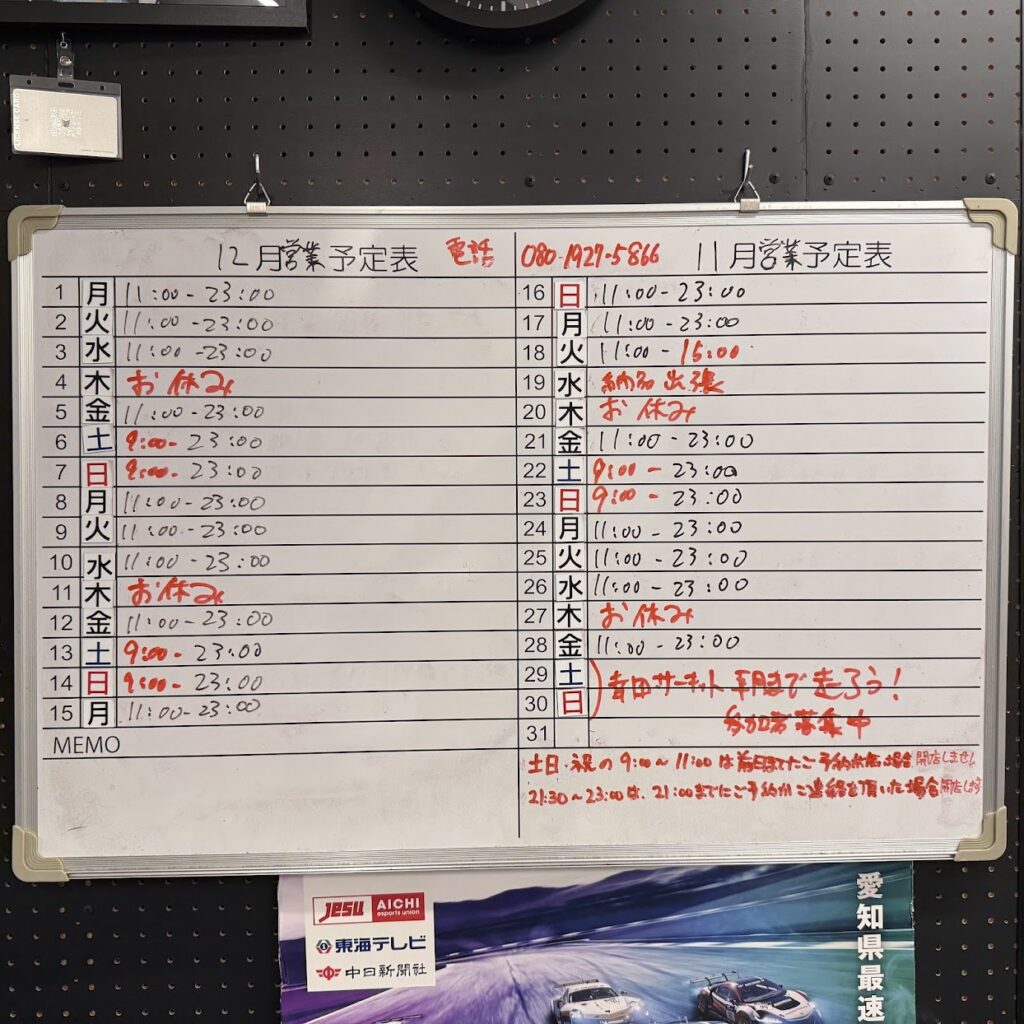 LICENSE CARD
12月営業予定表 電話
1 月 11:00-23:00
2 火 11:00-23:00
3 水 11:00-23:00
4 木 お休み
5 金 11:00-23:00
6 土 9:00-23:00
7 日 9:00-23:00
8 月 11:00-23:00
9 火 11:00-23:00
10 水 11:00-23:00
11 木 お休み
12 金 11:00-23:00
13 土 9:00-23:00
14 日 9:00-23:00
15 月 11:00-23:00
MEMO
080-1927-5866 11月営業予定表
16 日 11:00-23:00
17 月 11:00-23:00
18 火 11:00-15:00
19 水 納品出張
20 木 お休み
21 金 11:00-23:00
22 土 9:00-23:00
23 日 9:00-23:00
24 月 11:00-23:00
25 火 11:00-23:00
26 水 11:00-23:00
27 木 お休み
28 金 11:00-23:00
29 土 幸田サーキット 朝まで走ろう!
30 日
参加者募集中
31
土日・祝の9:00~11:00は前日までにご予約が無い場合開店しません
21:30~23:00は、21:00までにご予約かご連絡を頂いた場合開店します
JeSU AICHI
esports union
東海テレビ
中日新聞社
愛知県最速